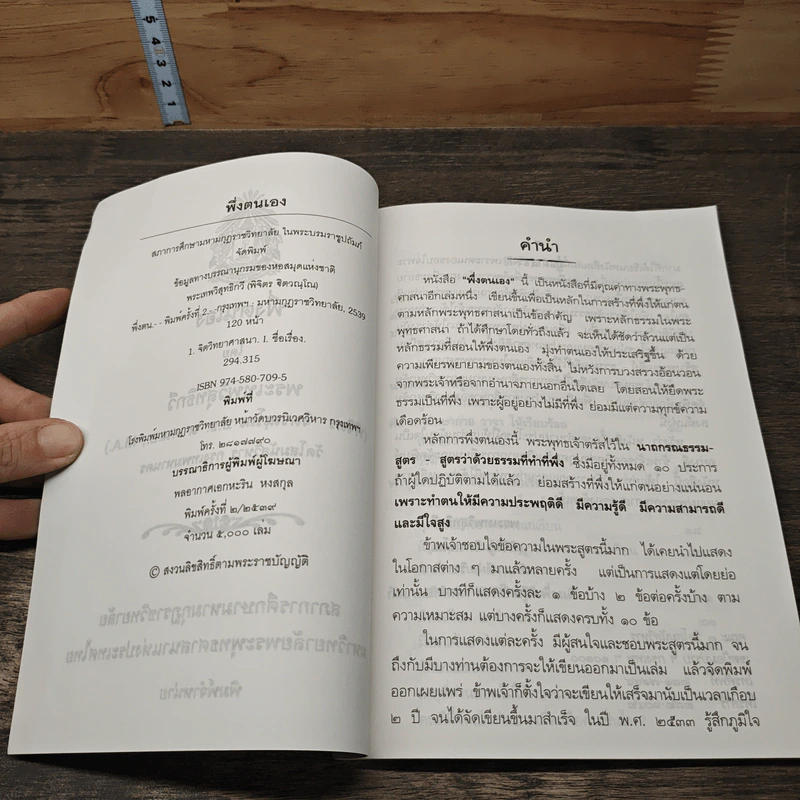 5
4
3
2
1
พึ่งตนเอง
สภาการศึกษามหามกุฏราชวิทยาลัย ในพระบรมราชูปถัมภ์
จัดพิมพ์
ข้อมูลทางบรรณานุกรมของหอสมุดแห่งชาติ
พระเทพวิสุทธิกวี (พิจิตร ฐิตวณฺโณ)
พึ่งตน.- - พิมพ์ครั้งที่ 2.- - กรุงเทพฯ : มหามกุฏราชวิทยาลัย, 2539
120 หน้า
1. จิตวิทยาศาสนา. I. ชื่อเรื่อง.
294.315
ISBN 974-580-709-5
พิมพ์ที่
โรงพิมพ์มหามกุฏราชวิทยาลัย หน้าวัดบวรนิเวศวิหาร กรุงเทพฯ
โทร. ๒๘๑๗๙๙๐
บรรณาธิการผู้พิมพ์ผู้โฆษณา
พลอากาศเอกหะริน หงสกุล
พิมพ์ครั้งที่ ๒/๒๕๓๙
จำนวน ๕,๐๐๐ เล่ม
© สงวนลิขสิทธิ์ตามพระราชบัญญัติ
คำนำ
หนังสือ "พึ่งตนเอง" นี้ เป็นหนังสือที่มีคุณค่าทางพระพุทธ-
ศาสนาอีกเล่มหนึ่ง เขียนขึ้นเพื่อเป็นหลักในการสร้างที่พึ่งให้แก่ตน
ตามหลักพระพุทธศาสนาเป็นข้อสำคัญ เพราะหลักธรรมในพระ
พุทธศาสนา ถ้าได้ศึกษาโดยทั่วถึงแล้ว จะเห็นได้ชัดว่าล้วนแต่เป็น
หลักธรรมที่สอนให้พึ่งตนเอง มุ่งทำตนเองให้ประเสริฐขึ้น ด้วย
ความเพียรพยายามของตนเองทั้งสิ้น ไม่หวังการบวงสรวงอ้อนวอน
จากพระเจ้าหรือจากอำนาจภายนอกอื่นใดเลย โดยสอนให้ยึดพระ
ธรรมเป็นที่พึ่ง เพราะผู้อยู่อย่างไม่มีที่พึ่ง ย่อมมีแต่ความทุกข์ความ
เดือดร้อน
หลักการพึ่งตนเองนี้ พระพุทธเจ้าตรัสไว้ใน นาถกรณธรรม-
สูตร - สูตรว่าด้วยธรรมที่ทำที่พึ่ง ซึ่งมีอยู่ทั้งหมด ๑๐ ประการ
ถ้าผู้ใดปฏิบัติตามได้แล้ว ย่อมสร้างที่พึ่งให้แก่ตนอย่างแน่นอน
เพราะทำตนให้มีความประพฤติดี มีความรู้ดี มีความสามารถดี
และมีใจสูง
ข้าพเจ้าชอบใจข้อความในพระสูตรนี้มาก ได้เคยนำไปแสดง
ในโอกาสต่าง ๆ มาแล้วหลายครั้ง แต่เป็นการแสดงแต่โดยย่อ
เท่านั้น บางทีก็แสดงครั้งละ ๑ ข้อบ้าง ๒ ข้อต่อครั้งบ้าง ตาม
ความเหมาะสม แต่บางครั้งก็แสดงครบทั้ง ๑๐ ข้อ
ในการแสดงแต่ละครั้ง มีผู้สนใจและชอบพระสูตรนี้มาก จน
ถึงกับมีบางท่านต้องการจะให้เขียนออกมาเป็นเล่ม แล้วจัดพิมพ์
ออกเผยแพร่ ข้าพเจ้าก็ตั้งใจว่าจะเขียนให้เสร็จมานับเป็นเวลาเกือบ
๒ ปี จนได้จัดเขียนขึ้นมาสำเร็จ ในปี พ.ศ. ๒๕๓๓ รู้สึกภูมิใจ